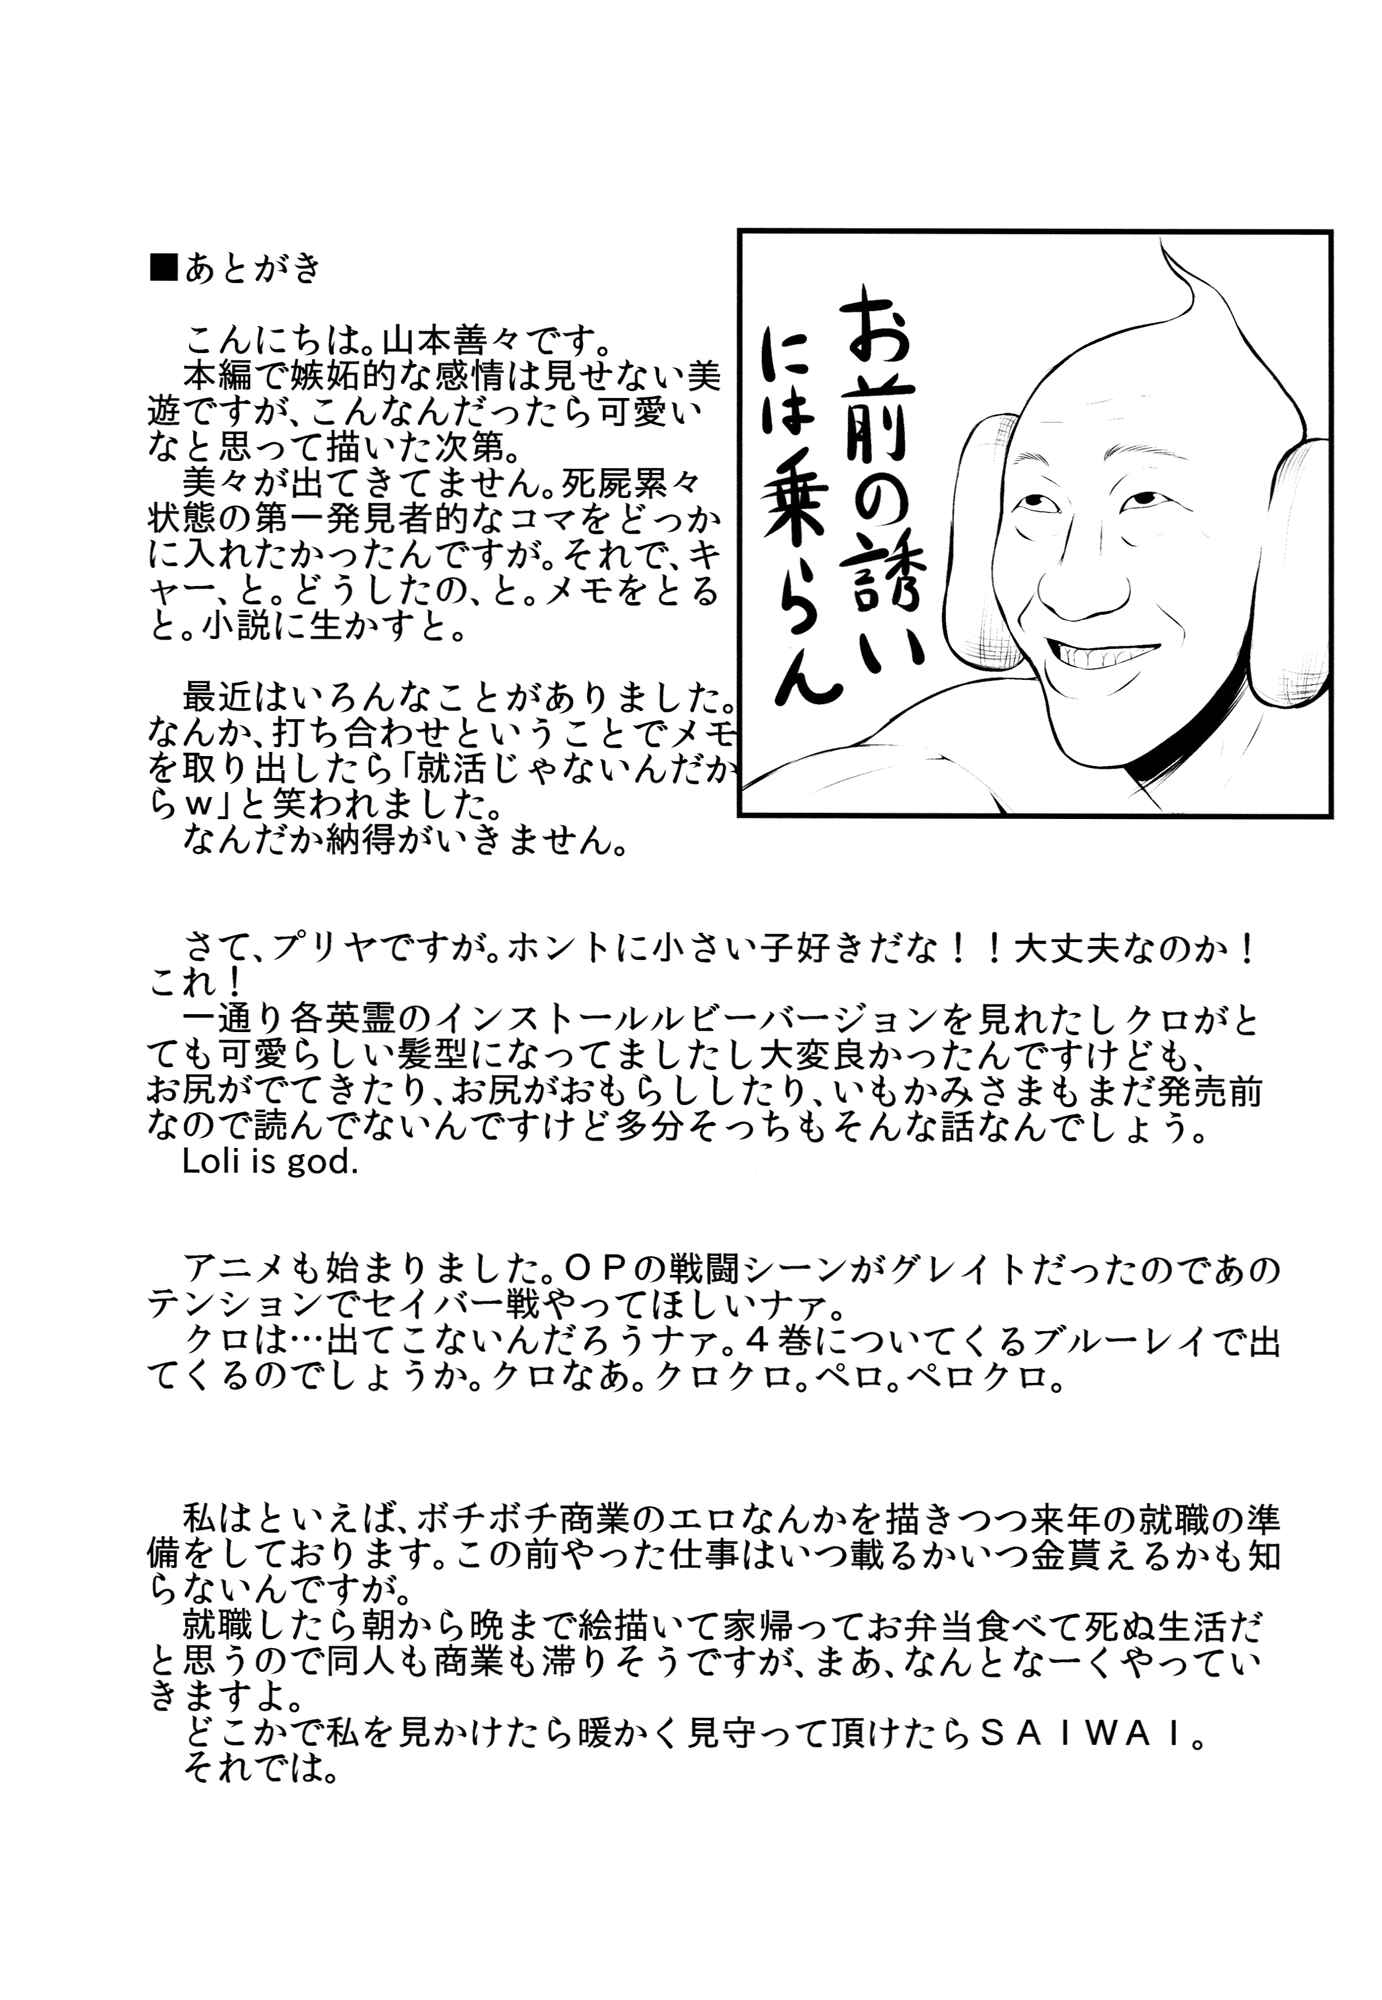 ■あとがき
こんにちは。山本善々です。
本編で嫉妬的な感情は見せない美
遊ですが、こんなんだったら可愛い
なと思って描いた次第。
美々が出てきてません。死屍累々
状態の第一発見者的なコマをどっか
に入れたかったんですが。それで、キ
ャー、と。どうしたの、と。メモをとる
と。小説に生かすと。
最近はいろんなことがありました。
なんか、打ち合わせということでメモ
を取り出したら「就活じゃないんだか
らｗ」と笑われました。
なんだか納得がいきません。
お前の誘い
には乗らん
さて、プリヤですが。ホントに小さい子好きだな！！大丈夫なのか！
これ！
一通り各英霊のインストールルビーバージョンを見れたしクロがと
ても可愛らしい髪型になってましたし大変良かったんですけども、
お尻がでてきたり、お尻がおもらししたり、いもかみさまもまだ発売前
なので読んでないんですけど多分そっちもそんな話なんでしょう。
Loli is god.
アニメも始まりました。ＯＰの戦闘シーンがグレイトだったのであの
テンションでセイバー戦やってほしいナァ。
クロは…出てこないんだろうナァ。４巻についてくるブルーレイで出
てくるのでしょうか。クロなあ。クロクロ。ペロ。ペロクロ。
私はといえば、ボチボチ商業のエロなんかを描きつつ来年の就職の準
備をしております。この前やった仕事はいつ載るかいつ金貰えるかも知
らないんですが。
就職したら朝から晩まで絵描いて家帰ってお弁当食べて死ぬ生活だ
と思うので同人も商業も滞りそうですが、まあ、なんとなーくやってい
きますよ。
どこかで私を見かけたら暖かく見守って頂けたらＳＡＩＷＡＩ。
それでは。